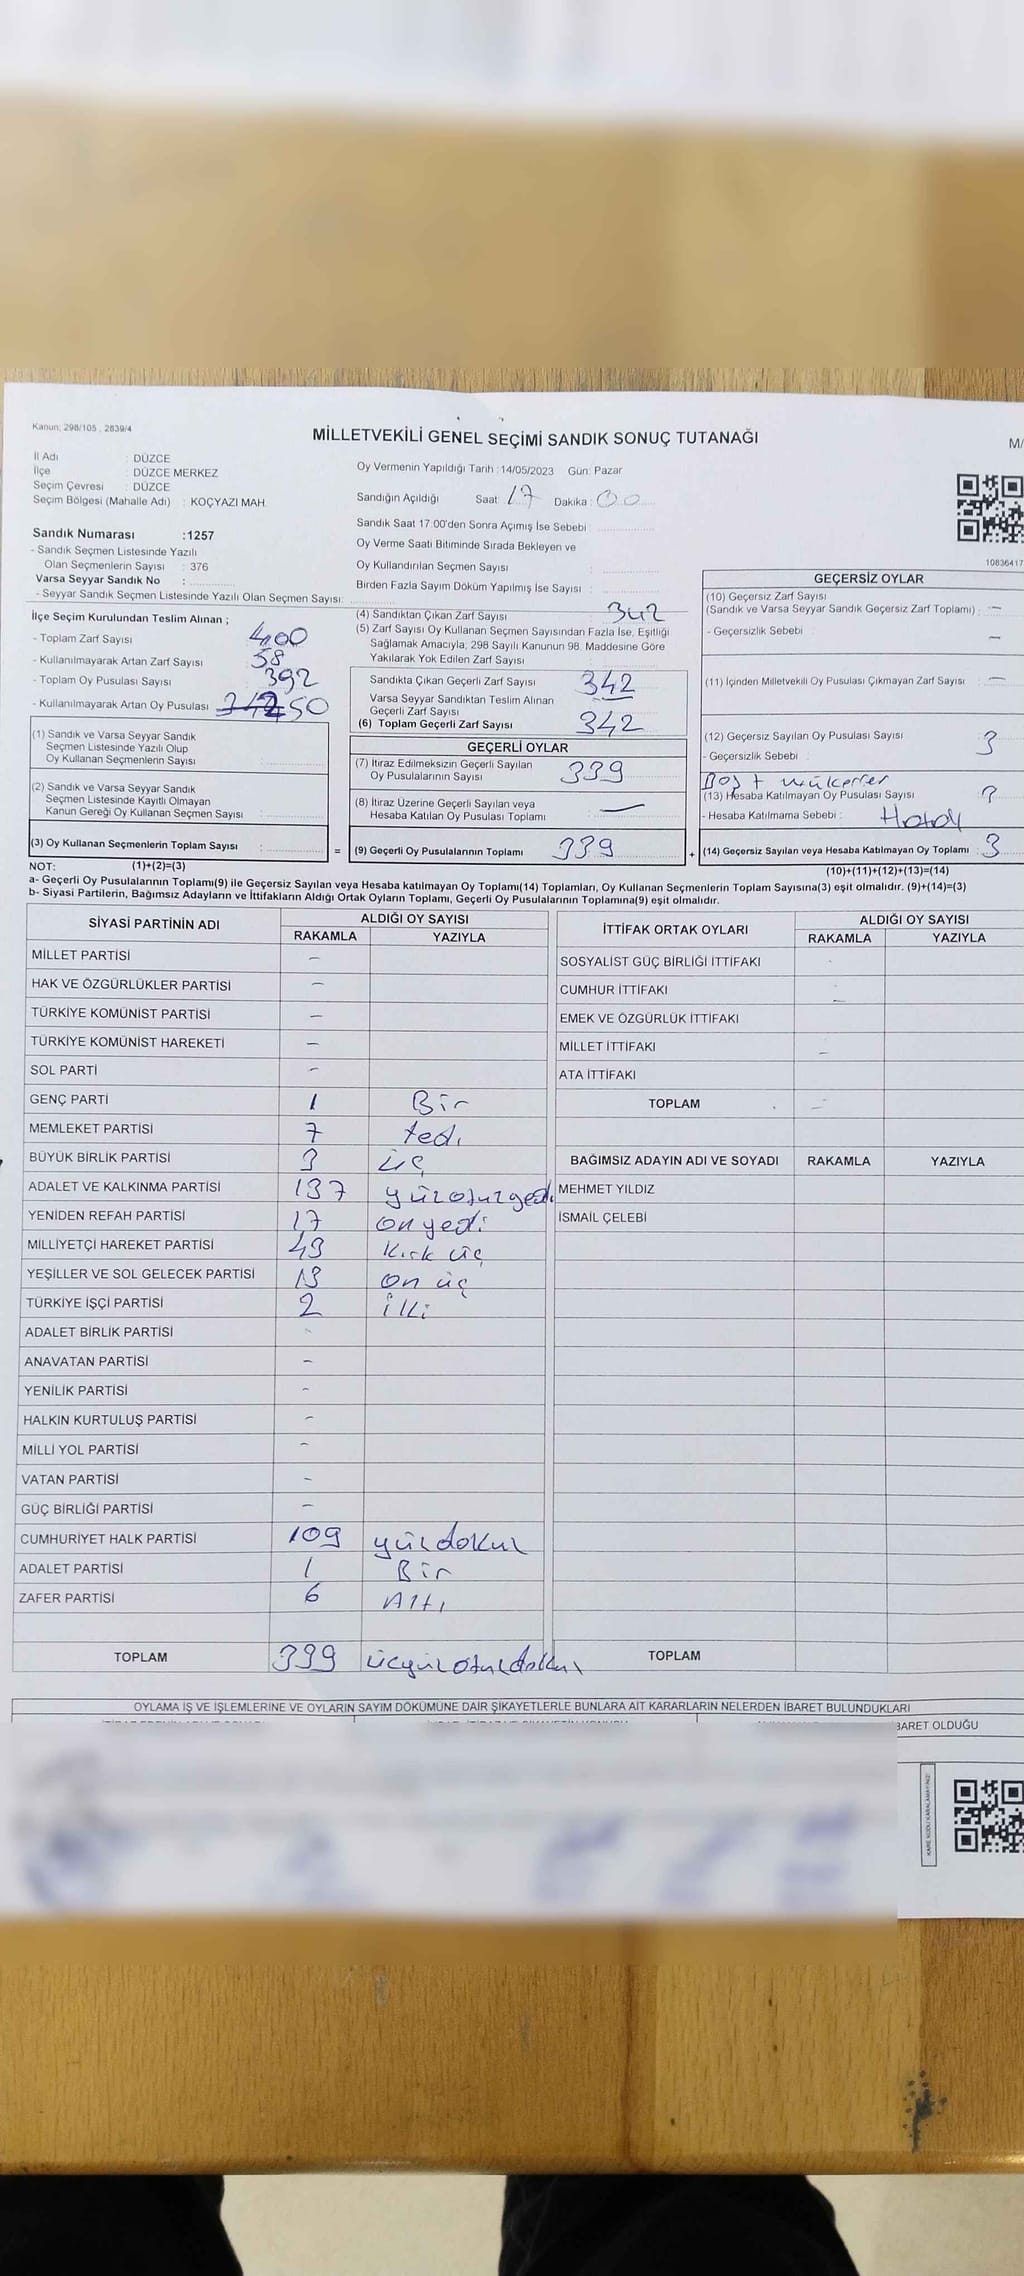 Kanun; 298/105 , 2839/4
MİLLETVEKİLİ GENEL SEÇİMİ SANDIK SONUÇ TUTANAĞI
M/
İl Adı : DÜZCE
İlçe : DÜZCE MERKEZ
Seçim Çevresi : DÜZCE
Seçim Bölgesi (Mahalle Adı) : KOÇYAZI MAH.
Oy Vermenin Yapıldığı Tarih : 14/05/2023 Gün: Pazar
Sandığın Açıldığı Saat: 17 Dakika : 00
Sandık Saat 17.00'den Sonra Açımış İse Sebebi :
Oy Verme Saati Bitiminde Sırada Bekleyen ve
Oy Kullandırılan Seçmen Sayısı :
Birden Fazla Sayım Döküm Yapılmış İse Sayısı :
10836417
Sandık Numarası :1257
- Sandık Seçmen Listesinde Yazılı
Olan Seçmenlerin Sayısı : 376
Varsa Seyyar Sandık No :
- Seyyar Sandık Seçmen Listesinde Yazılı Olan Seçmen Sayısı:
İlçe Seçim Kurulundan Teslim Alınan ;
- Toplam Zarf Sayısı 400
- Kullanılmayarak Artan Zarf Sayısı 58
- Toplam Oy Pusulası Sayısı 392
- Kullanılmayarak Artan Oy Pusulası 50
(1) Sandık ve Varsa Seyyar Sandık
Seçmen Listesinde Yazılı Olup
Oy Kullanan Seçmenlerin Sayısı :
(2) Sandık ve Varsa Seyyar Sandık
Seçmen Listesinde Kayıtlı Olmayan
Kanun Gereği Oy Kullanan Seçmen Sayısı :
(3) Oy Kullanan Seçmenlerin Toplam Sayısı :
=
(4) Sandıktan Çıkan Zarf Sayısı : 342
(5) Zarf Sayısı Oy Kullanan Seçmen Sayısından Fazla İse, Eşitliği
Sağlamak Amacıyla, 298 Sayılı Kanunun 98. Maddesine Göre
Yakılarak Yok Edilen Zarf Sayısı :
Sandıkta Çıkan Geçerli Zarf Sayısı : 342
Varsa Seyyar Sandıktan Teslim Alınan
Geçerli Zarf Sayısı
(6) Toplam Geçerli Zarf Sayısı : 342
GEÇERLİ OYLAR
(7) İtiraz Edilmeksizin Geçerli Sayılan
Oy Pusulalarının Sayısı : 339
(8) İtiraz Üzerine Geçerli Sayılan veya
Hesaba Katılan Oy Pusulası Toplamı : —
(9) Geçerli Oy Pusulalarının Toplamı : 339
+
GEÇERSİZ OYLAR
(10) Geçersiz Zarf Sayısı
(Sandık ve Varsa Seyyar Sandık Geçersiz Zarf Toplamı) : —
- Geçersizlik Sebebi : —
(11) İçinden Milletvekili Oy Pusulası Çıkmayan Zarf Sayısı : —
(12) Geçersiz Sayılan Oy Pusulası Sayısı : 3
- Geçersizlik Sebebi :
Boş + mükerrer
(13) Hesaba Katılmayan Oy Pusulası Sayısı :
- Hesaba Katılmama Sebebi :
(14) Geçersiz Sayılan veya Hesaba Katılmayan Oy Toplamı : 3
NOT: (1)+(2)=(3)
(10)+(11)+(12)+(13)=(14)
a- Geçerli Oy Pusulalarının Toplamı(9) ile Geçersiz Sayılan veya Hesaba katılmayan Oy Toplamı(14) Toplamları, Oy Kullanan Seçmenlerin Toplam Sayısına(3) eşit olmalıdır. (9)+(14)=(3)
b- Siyasi Partilerin, Bağımsız Adayların ve İttifakların Aldığı Ortak Oyların Toplamı, Geçerli Oy Pusulalarının Toplamına(9) eşit olmalıdır.
SİYASİ PARTİNİN ADI ALDIĞI OY SAYISI
RAKAMLA YAZIYLA
MİLLET PARTİSİ —
HAK VE ÖZGÜRLÜKLER PARTİSİ —
TÜRKİYE KOMÜNİST PARTİSİ —
TÜRKİYE KOMÜNİST HAREKETİ —
SOL PARTİ —
GENÇ PARTİ 1 Bir
MEMLEKET PARTİSİ 7 Yedi
BÜYÜK BİRLİK PARTİSİ 3 üç
ADALET VE KALKINMA PARTİSİ 137 yüzotuzyedi
YENİDEN REFAH PARTİSİ 17 onyedi
MİLLİYETÇİ HAREKET PARTİSİ 43 Kırk üç
YEŞİLLER VE SOL GELECEK PARTİSİ 13 on üç
TÜRKİYE İŞÇİ PARTİSİ 2 iki
ADALET BİRLİK PARTİSİ -
ANAVATAN PARTİSİ —
YENİLİK PARTİSİ -
HALKIN KURTULUŞ PARTİSİ -
MİLLİ YOL PARTİSİ -
VATAN PARTİSİ -
GÜÇ BİRLİĞİ PARTİSİ —
CUMHURİYET HALK PARTİSİ 109 yüzdokuz
ADALET PARTİSİ 1 Bir
ZAFER PARTİSİ 6 Altı
TOPLAM 339 üçyüzotuzdokuz
İTTİFAK ORTAK OYLARI ALDIĞI OY SAYISI
RAKAMLA YAZIYLA
SOSYALİST GÜÇ BİRLİĞİ İTTİFAKI
CUMHUR İTTİFAKI
EMEK VE ÖZGÜRLÜK İTTİFAKI
MİLLET İTTİFAKI —
ATA İTTİFAKI
TOPLAM —
BAĞIMSIZ ADAYIN ADI VE SOYADI RAKAMLA YAZIYLA
MEHMET YILDIZ
İSMAİL ÇELEBİ
TOPLAM
OYLAMA İŞ VE İŞLEMLERİNE VE OYLARIN SAYIM DÖKÜMÜNE DAİR ŞİKAYETLERLE BUNLARA AİT KARARLARIN NELERDEN İBARET BULUNDUKLARI
BARET OLDUĞU
KARE KODU KARALAMAYINIZ!